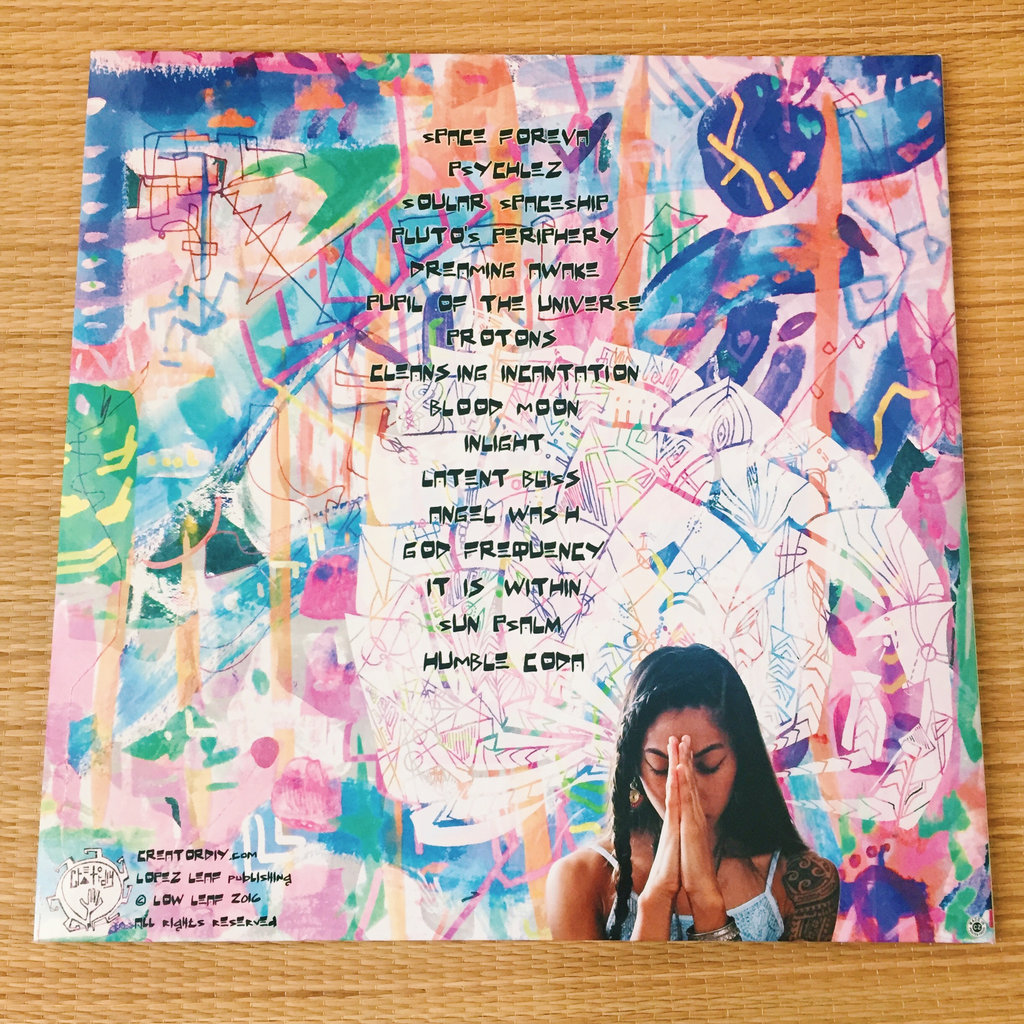 SPACE FOREVA
PSYCHLEZ
SOULAR SPACESHIP
PLUTO'S PERIPHERY
DREAMING AWAKE
PUPIL OF THE UNIVERSE
PROTONS
CLEANSING INCANTATION
BLOOD MOON
INLIGHT
LATENT BLISS
ANGEL WASH
GOD FREQUENCY
IT IS WITHIN
SUN PSALM
HUMBLE CODA
CREATORDIY.COM
LOPEZ LEAF PUBLISHING
© LOW LEAF 2016
ALL RIGHTS RESERVED